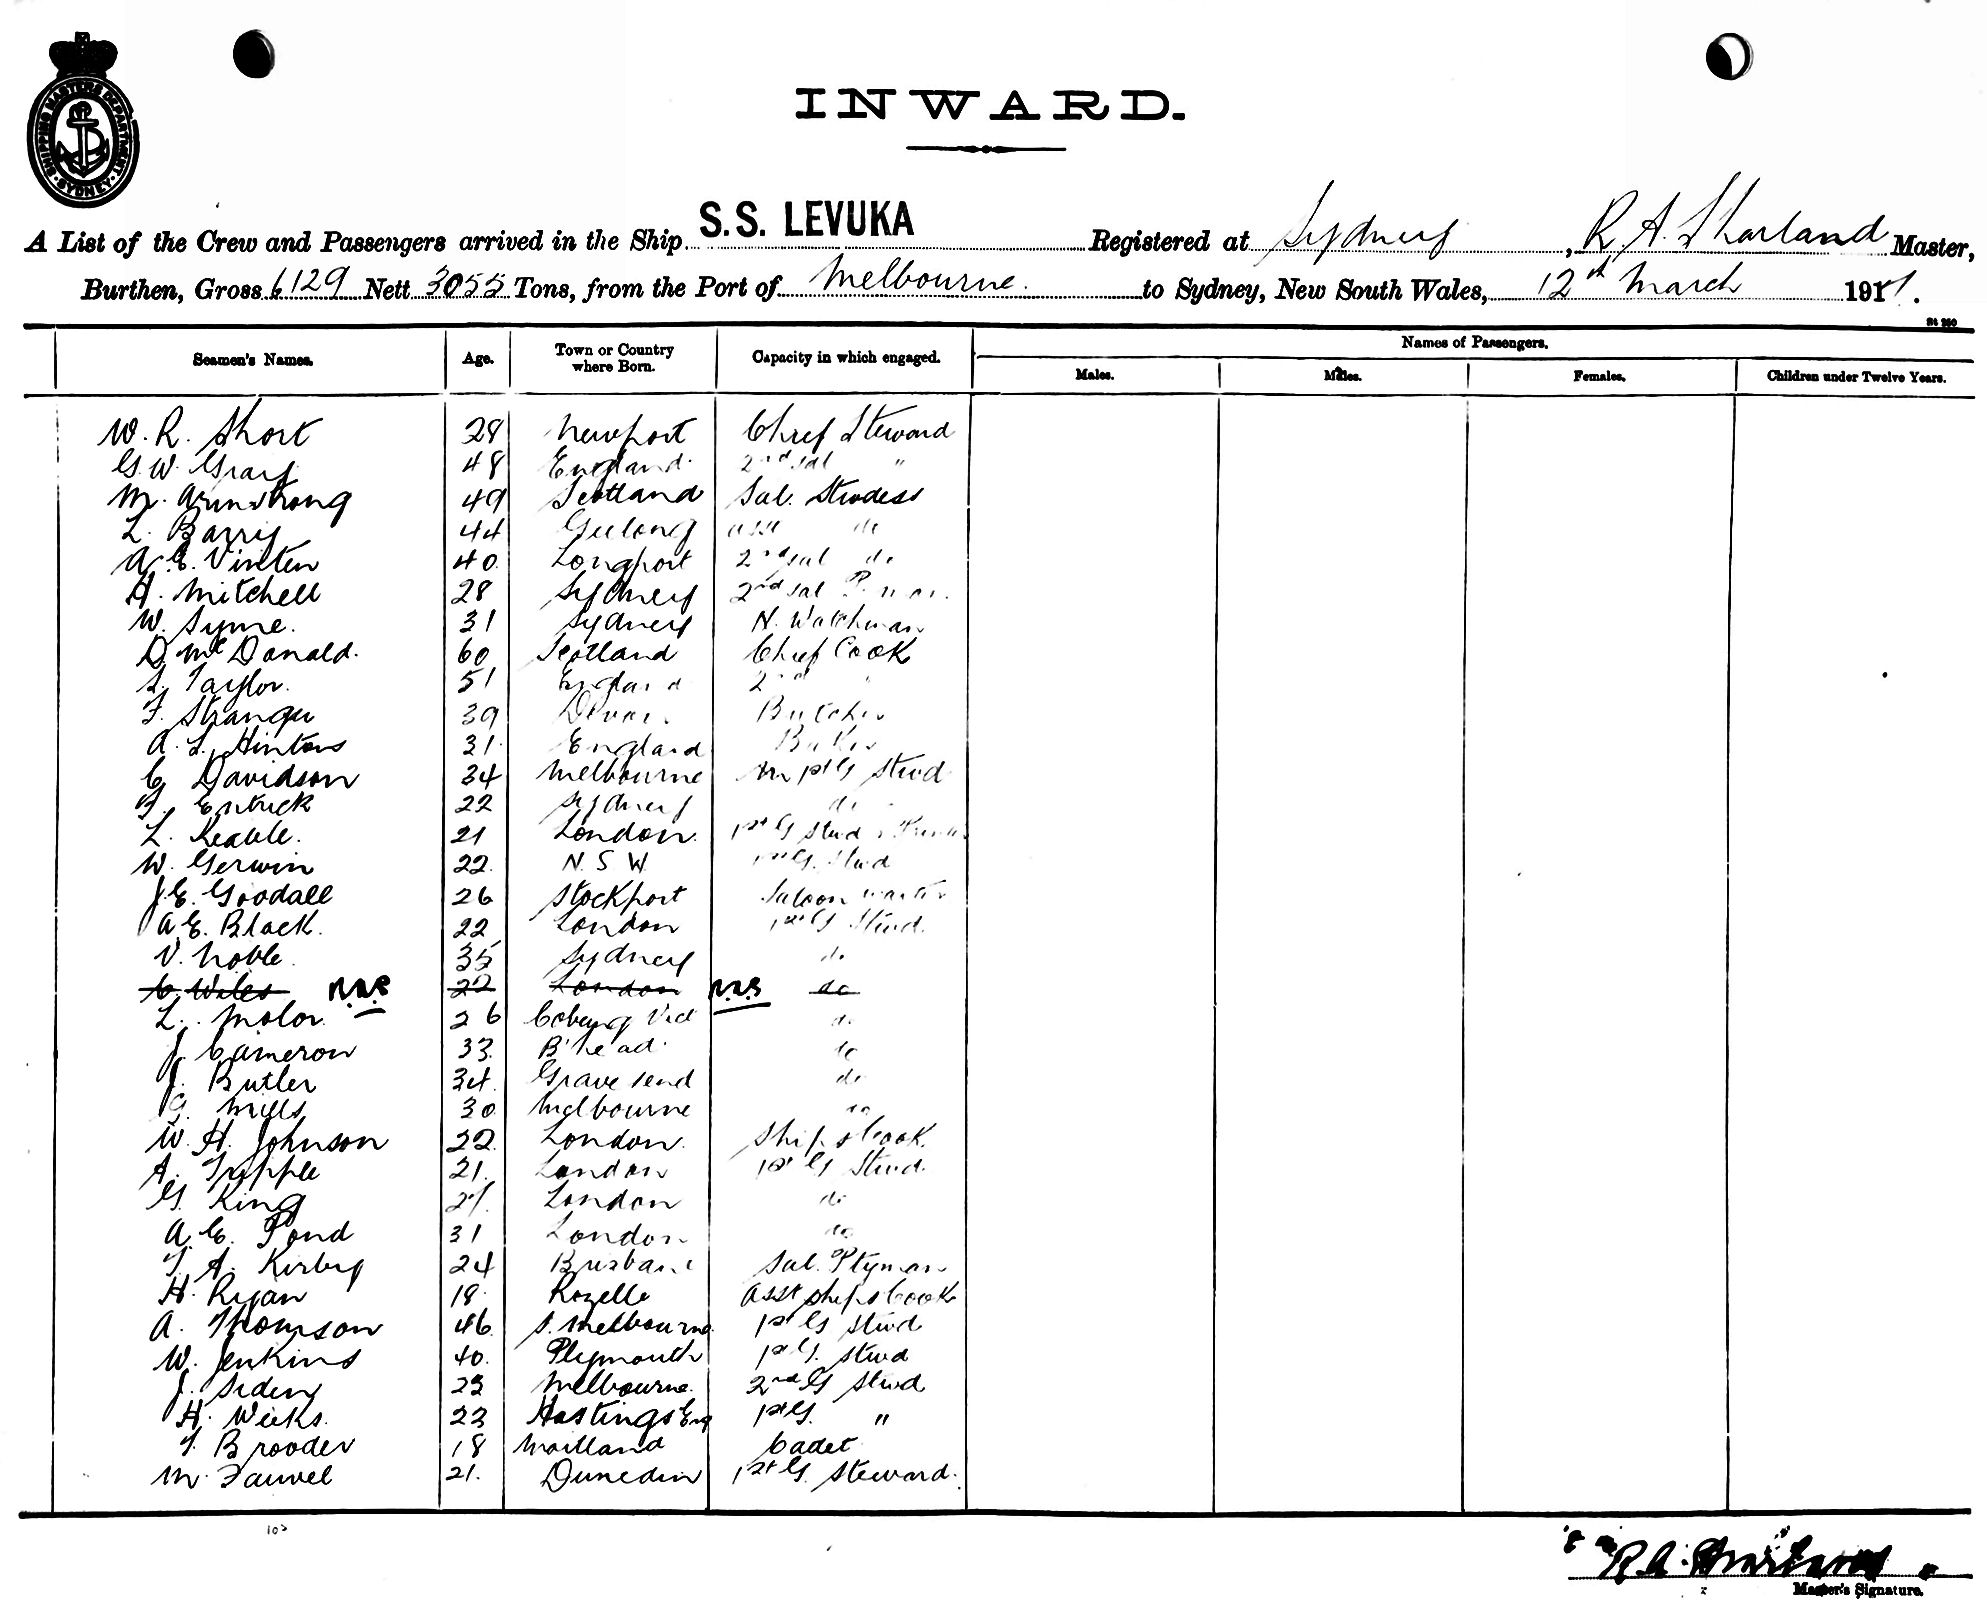 SHIPPING MASTERS DEPARTMENT
SYDNEY
INWARD.
A List of the Crew and Passengers arrived in the Ship S.S. LEVUKA Registered at Sydney, R A Sharland Master,
Burthen, Gross 6129 Nett 3055 Tons, from the Port of Melbourne. to Sydney, New South Wales, 12th March 1911.
St 250
Seamen's Names. Age. Town or Country where Born. Capacity in which engaged. Names of Passengers.
Males. Males. Females. Children under Twelve Years.
W. R. Short 28 Newport Chief Steward
G. W. Gray 48 England. 2nd Sal "
M. Armstrong 49 Scotland Sal. Stwdess
L. Barry 44 Geelong asst do
A. E. Vinten 40 Longport 2nd Sal do
H. Mitchell 28 Sydney 2nd Sal
W. Syme. 31 Sydney N. Watchman
D McDonald. 60 Scotland Chief Cook
S. Taylor. 51 England 2nd "
F. Strange 39 Devon Butcher
A. L. Hintons 31 England Baker
C Davidson 34 Melbourne 1st G Stwd
F. Entrick 22 Sydney do
L. Keable. 21 London. 1st G Stwd
W. Gerwin 22. N. S W. 1st G. Stwd
J. E. Goodall 26 Stockport Saloon waiter
A E. Black. 22 London 1st G Stwd.
V. Noble. 35 Sydney do
C. Wiles 22 London do
L. Molor 26 Coburg Vic do
J Cameron 33. B'head. do
J. Butler 34. Gravesend do
G. Mills 30 Melbourne do
W. H. Johnson 22. London. Ships Cook.
A. Tripple 21. London 1st G Stwd.
G. King 21. London do
A. E. Pond 31 London do
T. A. Kirby 24 Brisbane Sal. Ptyman
H. Ryan 18. Rozelle Asst Ships Cook
A. Thomson 46. S. Melbourne 1st G Stwd
W. Jenkins 40. Plymouth 1st G. Stwd
J. Sideny 23 Melbourne. 2nd G Stwd
H. Weeks. 23 Hastings Eng 1st G. "
T. Brooder 18 Maitland Cadet
M. Fauvel 21. Dunedin 1st G. Steward.
R. A. Sharland
Master's Signature.